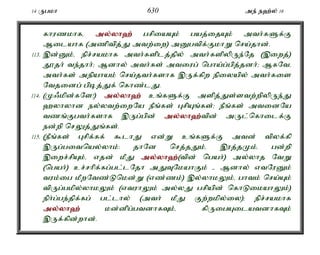 14 ருபமா 630 அந் நஹ்ல் 16
காரணமாக, அல்லாஹ் பசியையும் பயத்தையும் அவர்களுக்கு
ஆடையாக (அணிவித்து அவற்றை) அனுபவிக்குமாறு செய்தான்.
113. இன்னும், நிச்சயமாக அவர்களிடத்தில் அவர்களிலிருந்தே (இறைத்)
தூதர் வந்தார்; ஆனால் அவர்கள் அவரைப் பொய்ப்பித்தனர்; ஆகவே,
அவர்கள் அநியாயம் செய்தவர்களாக இருக்கிற நிலையில் அவர்களை
வேதனை பிடித்துக் கொண்டது.
114. (முஃமின்களே!) அல்லாஹ் உங்களுக்கு அளித்துள்ளவற்றிலிருந்து
ஹலாலான நல்லவற்றையே நீங்கள் புசியுங்கள்; நீங்கள் அவனையே
வணங்குபவர்களாக இருப்பின் அல்லாஹ்வின் அருட்கொடைக்கு
நன்றி செலுத்துங்கள்.
115. (நீங்கள் புசிக்கக் கூடாது என்று உங்களுக்கு அவன் விலக்கி
இருப்பவையெல்லாம்: தானே செத்ததும், இரத்தமும், பன்றி
இறைச்சியும், எதன் மீது அல்லாஹ்(வின் பெயர்) அல்லாத வேறு
(பெயர்) உச்சரிக்கப்பட்டதோ அதுவுமேயாகும் - ஆனால் எவரேனும்
வரம்பை மீறவேண்டுமென்று (எண்ணம்) இல்லாமலும், பாவம் செய்யும்
விருப்பமில்லாமலும் (எவராலும் அல்லது பசியின் கொடுமையாலும்)
நிர்ப்பந்திக்கப் பட்டால் (அவர் மீது குற்றமில்லை); நிச்சயமாக
அல்லாஹ் மன்னிப்பவனாகவும், கிருபையுடையவனாகவும்
இருக்கின்றான்.